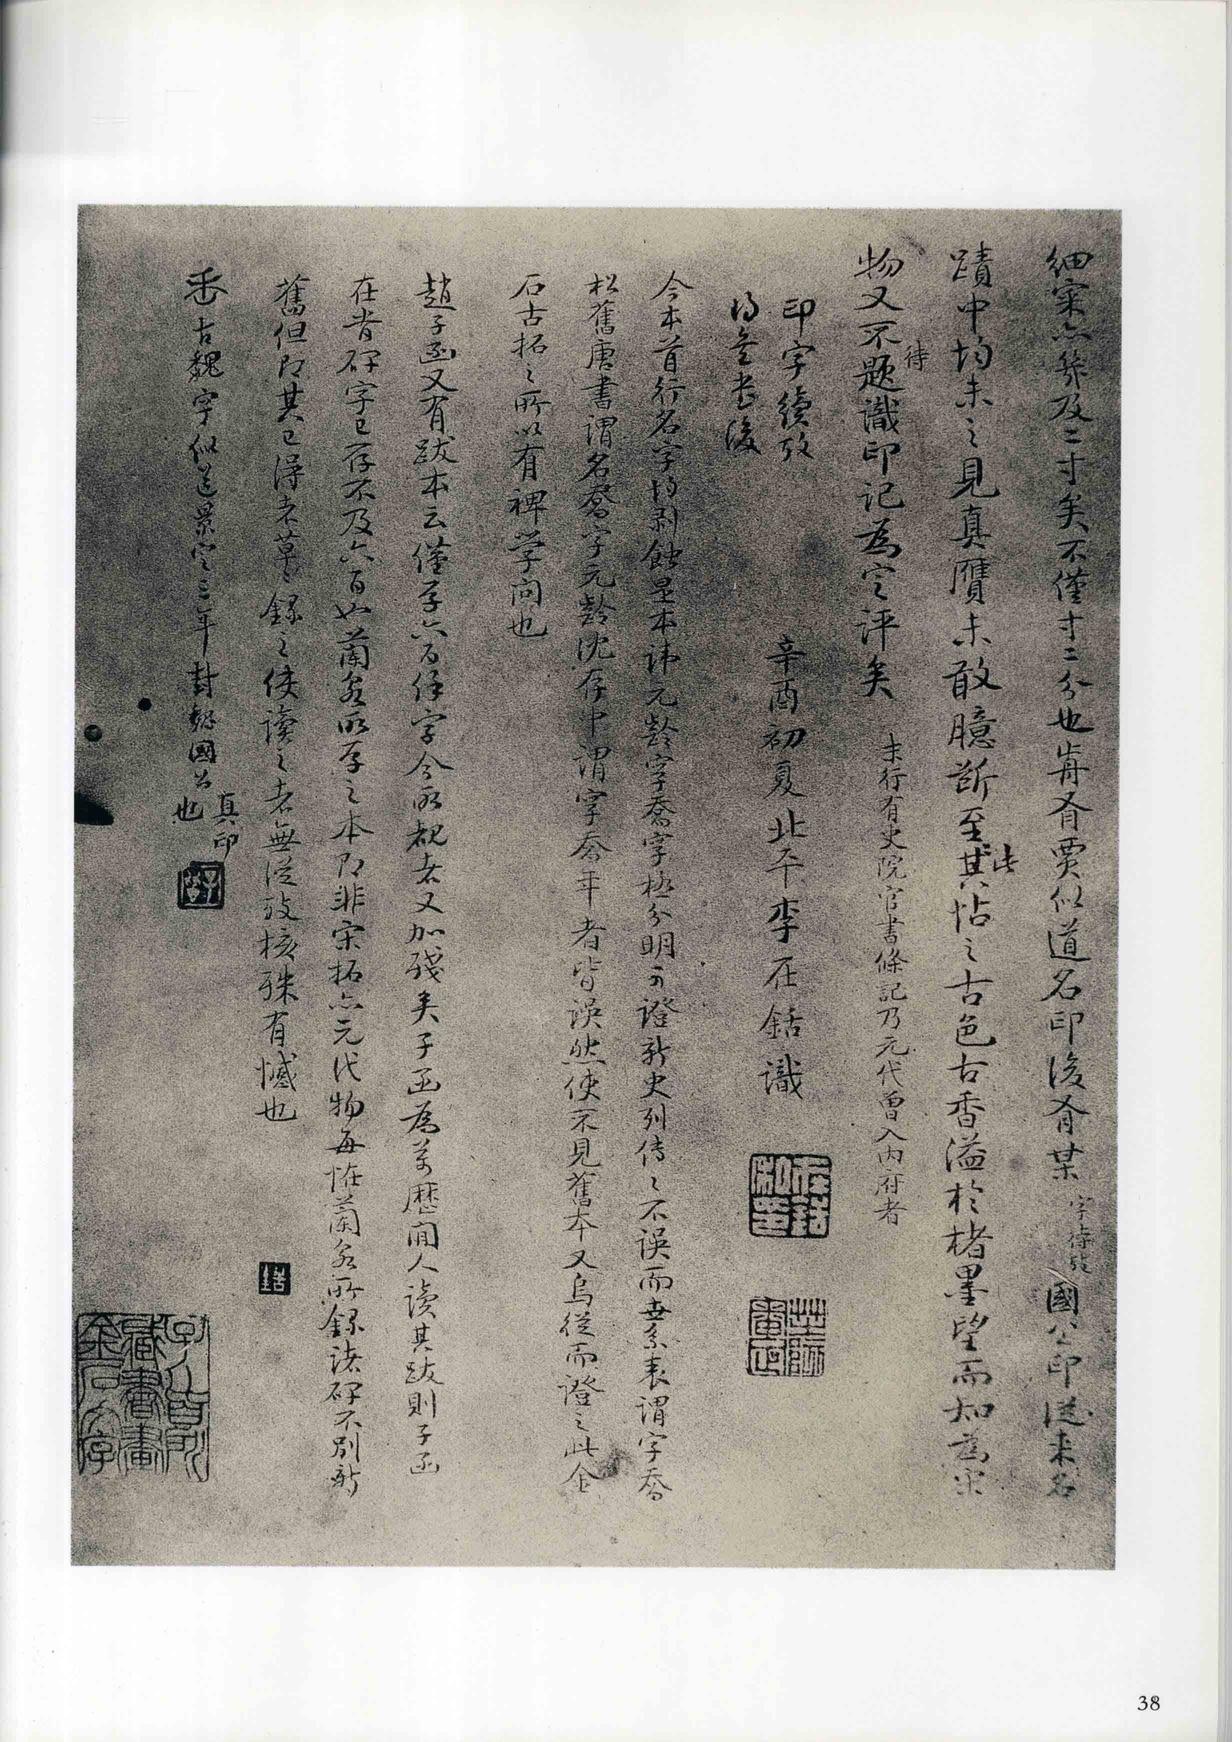 細案亦幾及二寸矣不僅寸二分也再有賈似道名印後有某字待攷國公印從來名
蹟中均未之見真贋未敢臆斷至其此帖之古色古香溢於楮墨望而知為宋
物又不待題識印記為定評矣
末行有史院官書條記乃元代曾入內府者
印字續攷
得無書後
辛酉初夏北平李在銛識
今本首行名字均剝蝕是本諱元齡字喬字極分明可證新史列傳之不誤而世系表謂字喬
松舊唐書謂名喬字元齡沈存中謂字喬年者皆誤然使不見舊本又烏從而證之此金
石古拓之所以有裨學問也
趙子函又有跋本云僅存六百餘字今所覩者又加殘矣子函為萬歷間人讀其跋則子函
在者碑字已存不及六百也蘭泉所存之本即非宋拓亦元代物每怪蘭泉所錄諸碑不別新
舊但即其已得者草草錄之使讀之者無從攷核殊有憾也
古魏字似道景定三年封魏國公
真印
也
銛